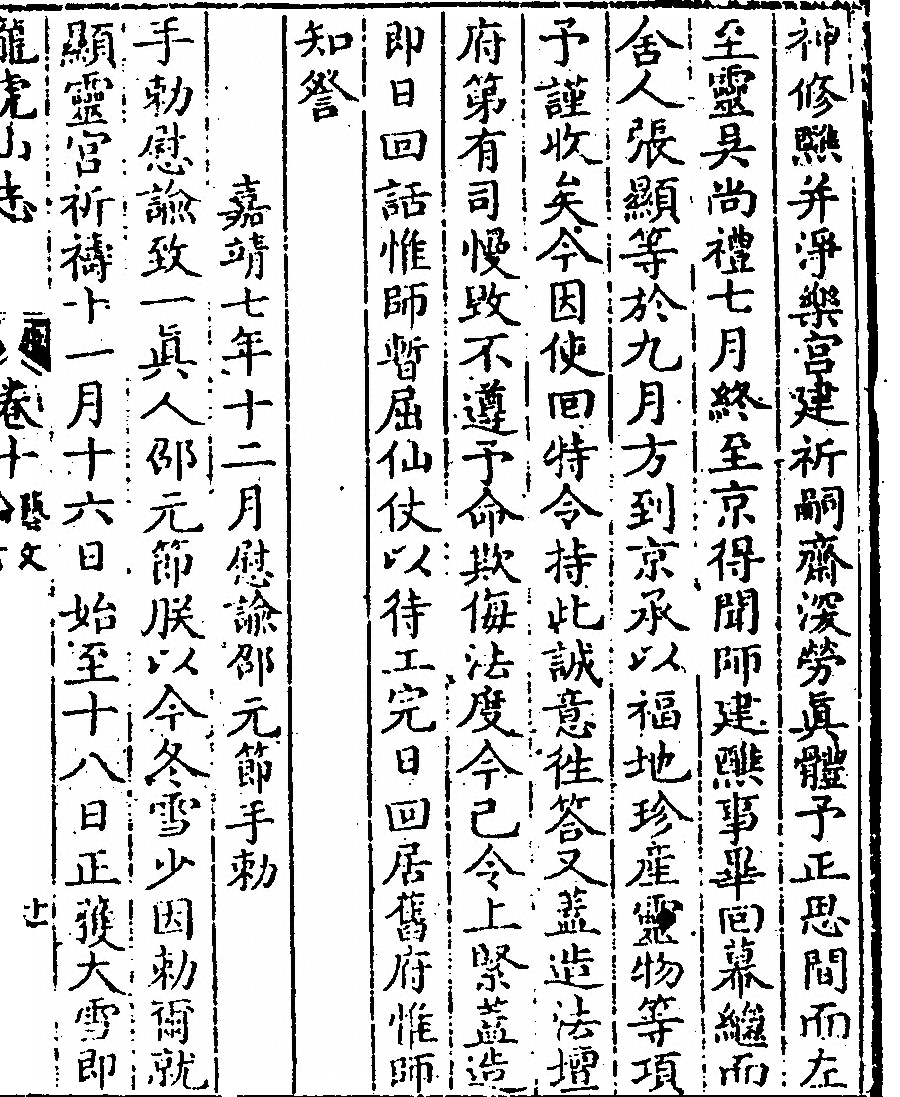 神修醮并淨樂宮建祈嗣齋深勞眞體予正思間而左
至靈吳尚禮七月終至京得聞師建醮事畢回幕繼而
舍人張顯等於九月方到京承以福地珍産靈物等項
予謹收矣今因使回特令持此誠意徃答又蓋造法壇
府第有司慢毀不遵予命欺侮法度今已令上緊蓋造
即日回話惟師暫屈仙仗以待工完日回居舊府惟師
知詧
嘉靖七年十二月慰諭邵元節手勅
手勅慰諭致一眞人邵元節朕以今冬雪少因勅爾就
顯靈宮祈禱十一月十六日始至十八日正獲大雪即
龍虎山志 卷十 藝文